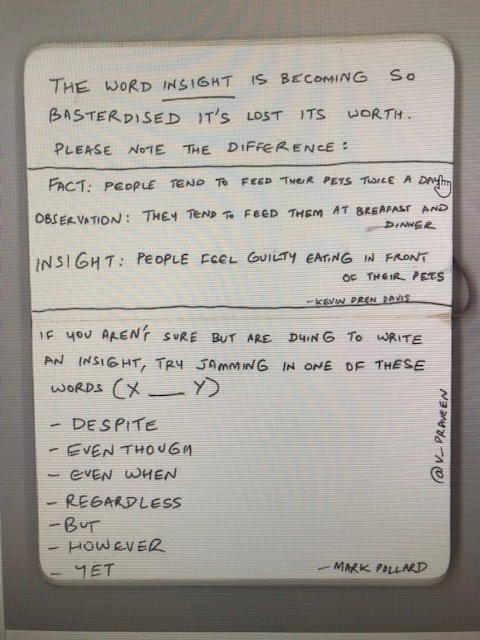 THE WORD INSIGHT IS BECOMING SO
BASTERDISED IT'S LOST ITS WORTH.
PLEASE NOTE THE DIFFERENCE:
FACT: PEOPLE TEND TO FEED THEIR PETS TWICE A DAY
OBSERVATION: THEY TEND TO FEED THEM AT BREAFAST AND
DINNER
INSIGHT: PEOPLE FEEL GUILTY EATING IN FRONT
OF THEIR PETS
-KEVIN DREN DAVIS
IF YOU AREN'T SURE BUT ARE DYING TO WRITE
AN INSIGHT, TRY JAMMING IN ONE OF THESE
WORDS (X ___ Y)
- DESPITE
- EVEN THOUGH
- EVEN WHEN
- REGARDLESS
- BUT
- HOWEVER
- YET
- MARK POLLARD
@V_PRAVEEN